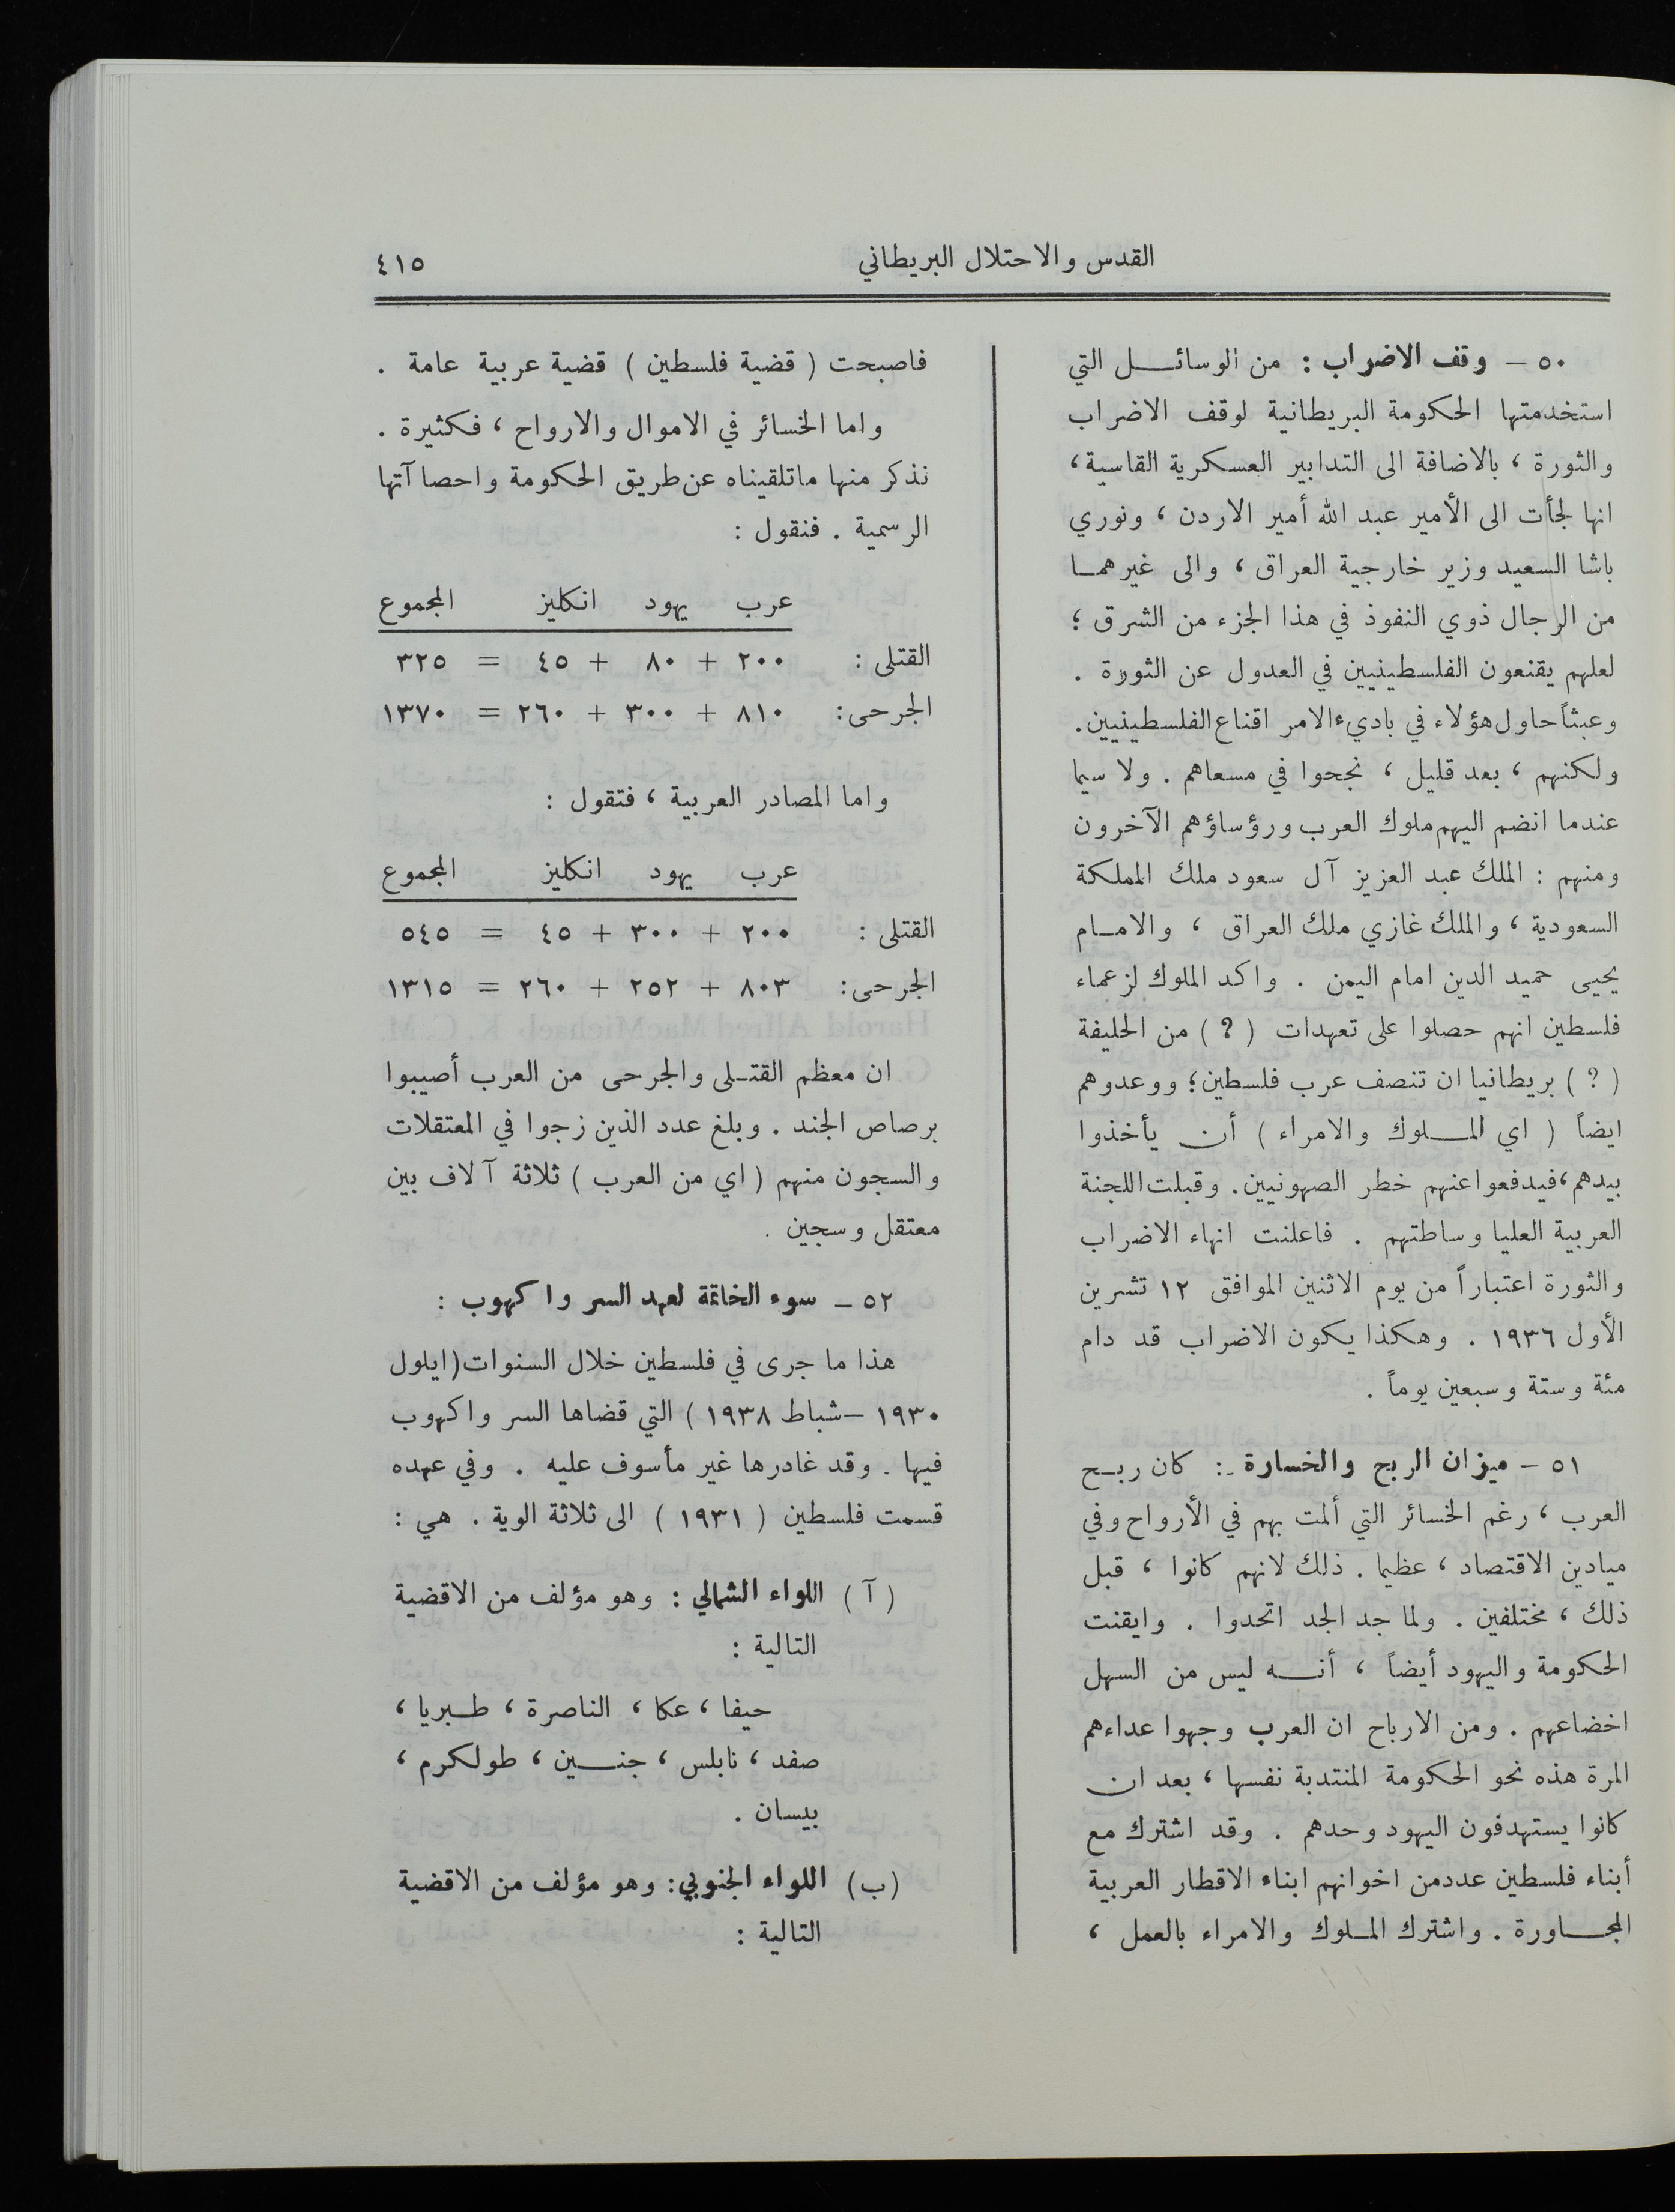 القدس والاحتلال البريطاني
٤١٥
٥٠ – وقف الاضراب : من الوسائل التي
استخدمتها الحكومة البريطانية لوقف الاضراب
والثورة ، بالاضافة الى التدابير العسكرية القاسية ،
انها لجأت الى الأمير عبد الله أمير الاردن ، ونوري
باشا السعيد وزير خارجية العراق ، والى غيرهما
من الرجال ذوي النفوذ في هذا الجزء من الشرق ؛
لعلهم يقنعون الفلسطينيين في العدول عن الثورة .
وعبثاً حاول هؤلاء في باديء الامر اقناع الفلسطينيين .
ولكنهم ، بعد قليل ، نجحوا في مسعاهم . ولا سيما
عندما انضم اليهم ملوك العرب ورؤساؤهم الآخرون
ومنهم : الملك عبد العزيز آل سعود ملك المملكة
السعودية ، والملك غازي ملك العراق ، والامام
يحيى حميد الدين امام اليمن . واكد الملوك لزعماء
فلسطين انهم حصلوا على تعهدات ( ? ) من الحليفة
( ? ) بريطانيا ان تنصف عرب فلسطين ؛ ووعدوهم
ايضاً ( اي الملوك والامراء ) أن يأخذوا
بيدهم ، فيدفعوا عنهم خطر الصهونيين . وقبلت اللجنة
العربية العليا وساطتهم . فاعلنت انهاء الاضراب
والثورة اعتباراً من يوم الاثنين الموافق ١٢ تشرين
الأول ١٩٣٦ . وهكذا يكون الاضراب قد دام
مئة وستة وسبعين يوماً .
٥١ – ميزان الربح والخسارة : كان ربح
العرب ، رغم الخسائر التي ألمت بهم في الأرواح وفي
ميادين الاقتصاد ، عظيما . ذلك لانهم كانوا ، قبل
ذلك ، مختلفين . ولما جد الجد اتحدوا . وايقنت
الحكومة واليهود أيضاً ، أنه ليس من السهل
اخضاعهم . ومن الارباح ان العرب وجهوا عداءهم
المرة هذه نحو الحكومة المنتدبة نفسها ، بعد ان
كانوا يستهدفون اليهود وحدهم . وقد اشترك مع
أبناء فلسطين عدد من اخوانهم ابناء الاقطار العربية
المجاورة . واشترك الملوك والامراء بالعمل ،
فاصبحت ( قضية فلسطين ) قضية عربية عامة .
واما الخسائر في الاموال والارواح ، فكثيرة .
نذكر منها ماتلقيناه عن طريق الحكومة واحصاآتها
الرسمية . فنقول :
عرب يهود انكليز المجموع
القتلى : ٢٠٠ + ٨٠ + ٤٥ = ٣٢٥
الجرحى : ٨١٠ + ٣٠٠ + ٢٦٠ = ١٣٧٠
واما المصادر العربية ، فتقول :
عرب يهود انكليز المجموع
القتلى : ٢٠٠ + ٣٠٠ + ٤٥ = ٥٤٥
الجرحى : ٨٠٣ + ٢٥٢ + ٢٦٠ = ١٣١٥
ان معظم القتلى والجرحى من العرب أصيبوا
برصاص الجند . وبلغ عدد الذين زجوا في المعتقلات
والسجون منهم ( اي من العرب ) ثلاثة آلاف بين
معتقل وسجين .
٥٢ – سوء الخاتمة لعهد السر واكهوب :
هذا ما جرى في فلسطين خلال السنوات ( ايلول
١٩٣٠ – شباط ١٩٣٨ ) التي قضاها السر واكهوب
فيها . وقد غادرها غير مأسوف عليه . وفي عهده
قسمت فلسطين ( ١٩٣١ ) الى ثلاثة الوية . هي :
( آ ) اللواء الشمالي : وهو مؤلف من الاقضية
التالية :
حيفا ، عكا ، الناصرة ، طبريا ،
صفد ، نابلس ، جنين ، طولكرم ،
بيسان .
(ب) اللواء الجنوبي : وهو مؤلف من الاقضية
التالية :